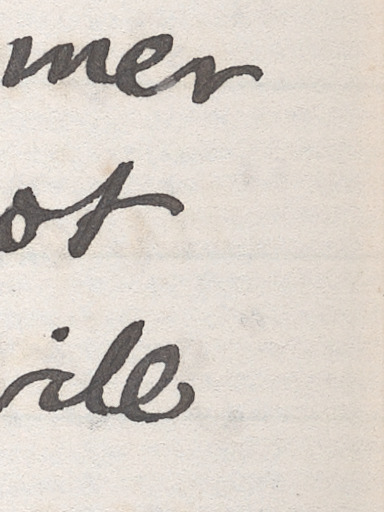 mer
ot
ville